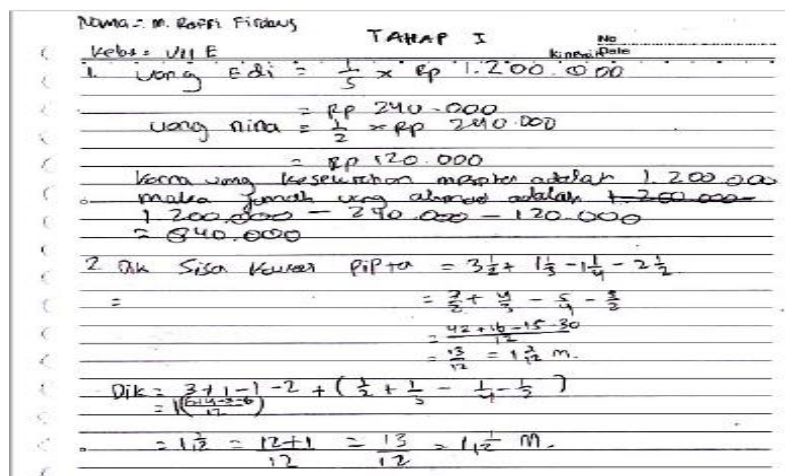 Nama = M. Raffi Firdaus
TAHAP I
No
Date
Kelas = VII E
1. uang Edi = 1/5 x Rp 1.200.000
= Rp 240.000
uang nina = 1/2 x Rp 240.000
= Rp 120.000
karna uang keseluruhan adalah 1.200.000
maka jumlah uang ahmad adalah 1.200.000
1.200.000 - 240.000 - 120.000
= 840.000
2 Dik Sisa = 3 1/2 + 1 1/3 - 1 1/4 - 2 1/2
= = 7/2 + 4/3 - 5/4 - 5/2
= 42 + 16 - 15 - 30 / 12
= 13/12 = m.
Dik = 3 + 1 - 1 - 2 + (1/2 + 1/3 - 1/4 - 1/2)
= 1 (6+4-3-6 / 12)
= = 12+1 / 12 = 13/12 = m.